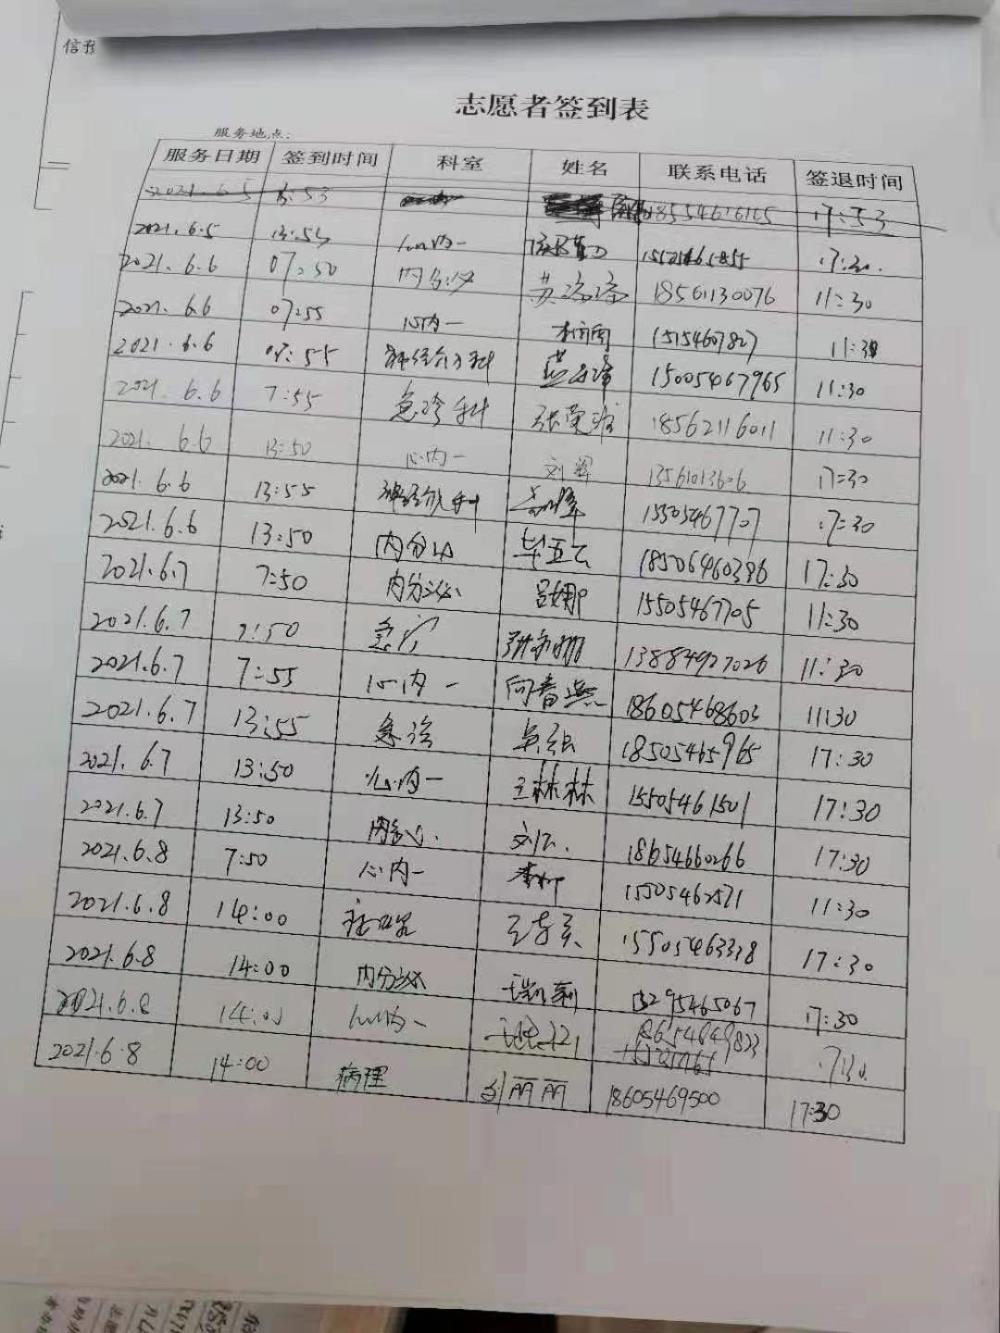 信预
志愿者签到表
服务地点:
服务日期 签到时间 科室 姓名 联系电话 签退时间
2021.6.5 18554676165 17:53
2021.6.5 13:55 心内一 17:30.
2021.6.6 07:50 内分泌 18561130076 11:30
2021.6.6 07:55 心内一 15154607827 11:30
2021.6.6 07:55 神经介入科 15005467965 11:30
2021.6.6 7:55 急诊科 18562116011 11:30
2021.6.6 13:50 心内一 刘军 13561013606 17:30
2021.6.6 13:55 神经介入科 15505467707 17:30
2021.6.6 13:50 内分泌 毕亚云 18506460396 17:30
2021.6.7 7:50 内分泌 吕娜 15505467705 11:30
2021.6.7 7:50 急诊 13884927026 11:30
2021.6.7 7:55 心内一 向春燕 18605468603 11:30
2021.6.7 13:55 急诊 18505465965 17:30
2021.6.7 13:50 心内一 王林林 15505461501 17:30
2021.6.7 13:50 内分泌. 18654660266 17:30
2021.6.8 7:50 心内一 15505462571 11:30
2021.6.8 14:00 15505463328 17:30
2021.6.8 14:00 内分泌 13295465067 17:30
2021.6.8 14:00 心内一 18654649823 17:30.
2021.6.8 14:00 病理 刘丽丽 18605469500 17:30